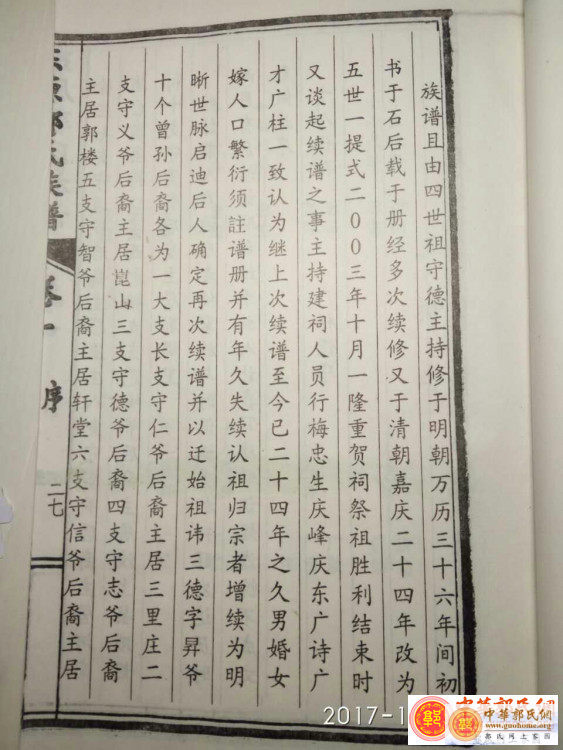 族谱且由四世祖守德主持修于明朝万历三十六年间初
书于石后载于册经多次续修又于清朝嘉庆二十四年改为
五世一提式二00三年十月一隆重贺祠祭祖胜利结束时
又谈起续谱之事主持建祠人员行梅忠生庆峰庆东广诗广
才广柱一致认为继上次续谱至今已二十四年之久男婚女
嫁人口繁衍须註谱册并有年久失续认祖归宗者增续为明
晰世脉启迪后人确定再次续谱并以迁始祖讳三德字昇爷
十个曾孙后裔各为一大支长支守仁爷后裔主居三里庄二
支守义爷后裔主居崑山三支守德爷后裔四支守志爷后裔
主居郭楼五支守智爷后裔主居轩堂六支守信爷后裔主居
郭氏族谱
卷一
序
二七
2017-1
中華郭氏網
www.guohome.org
郭氏网上家园